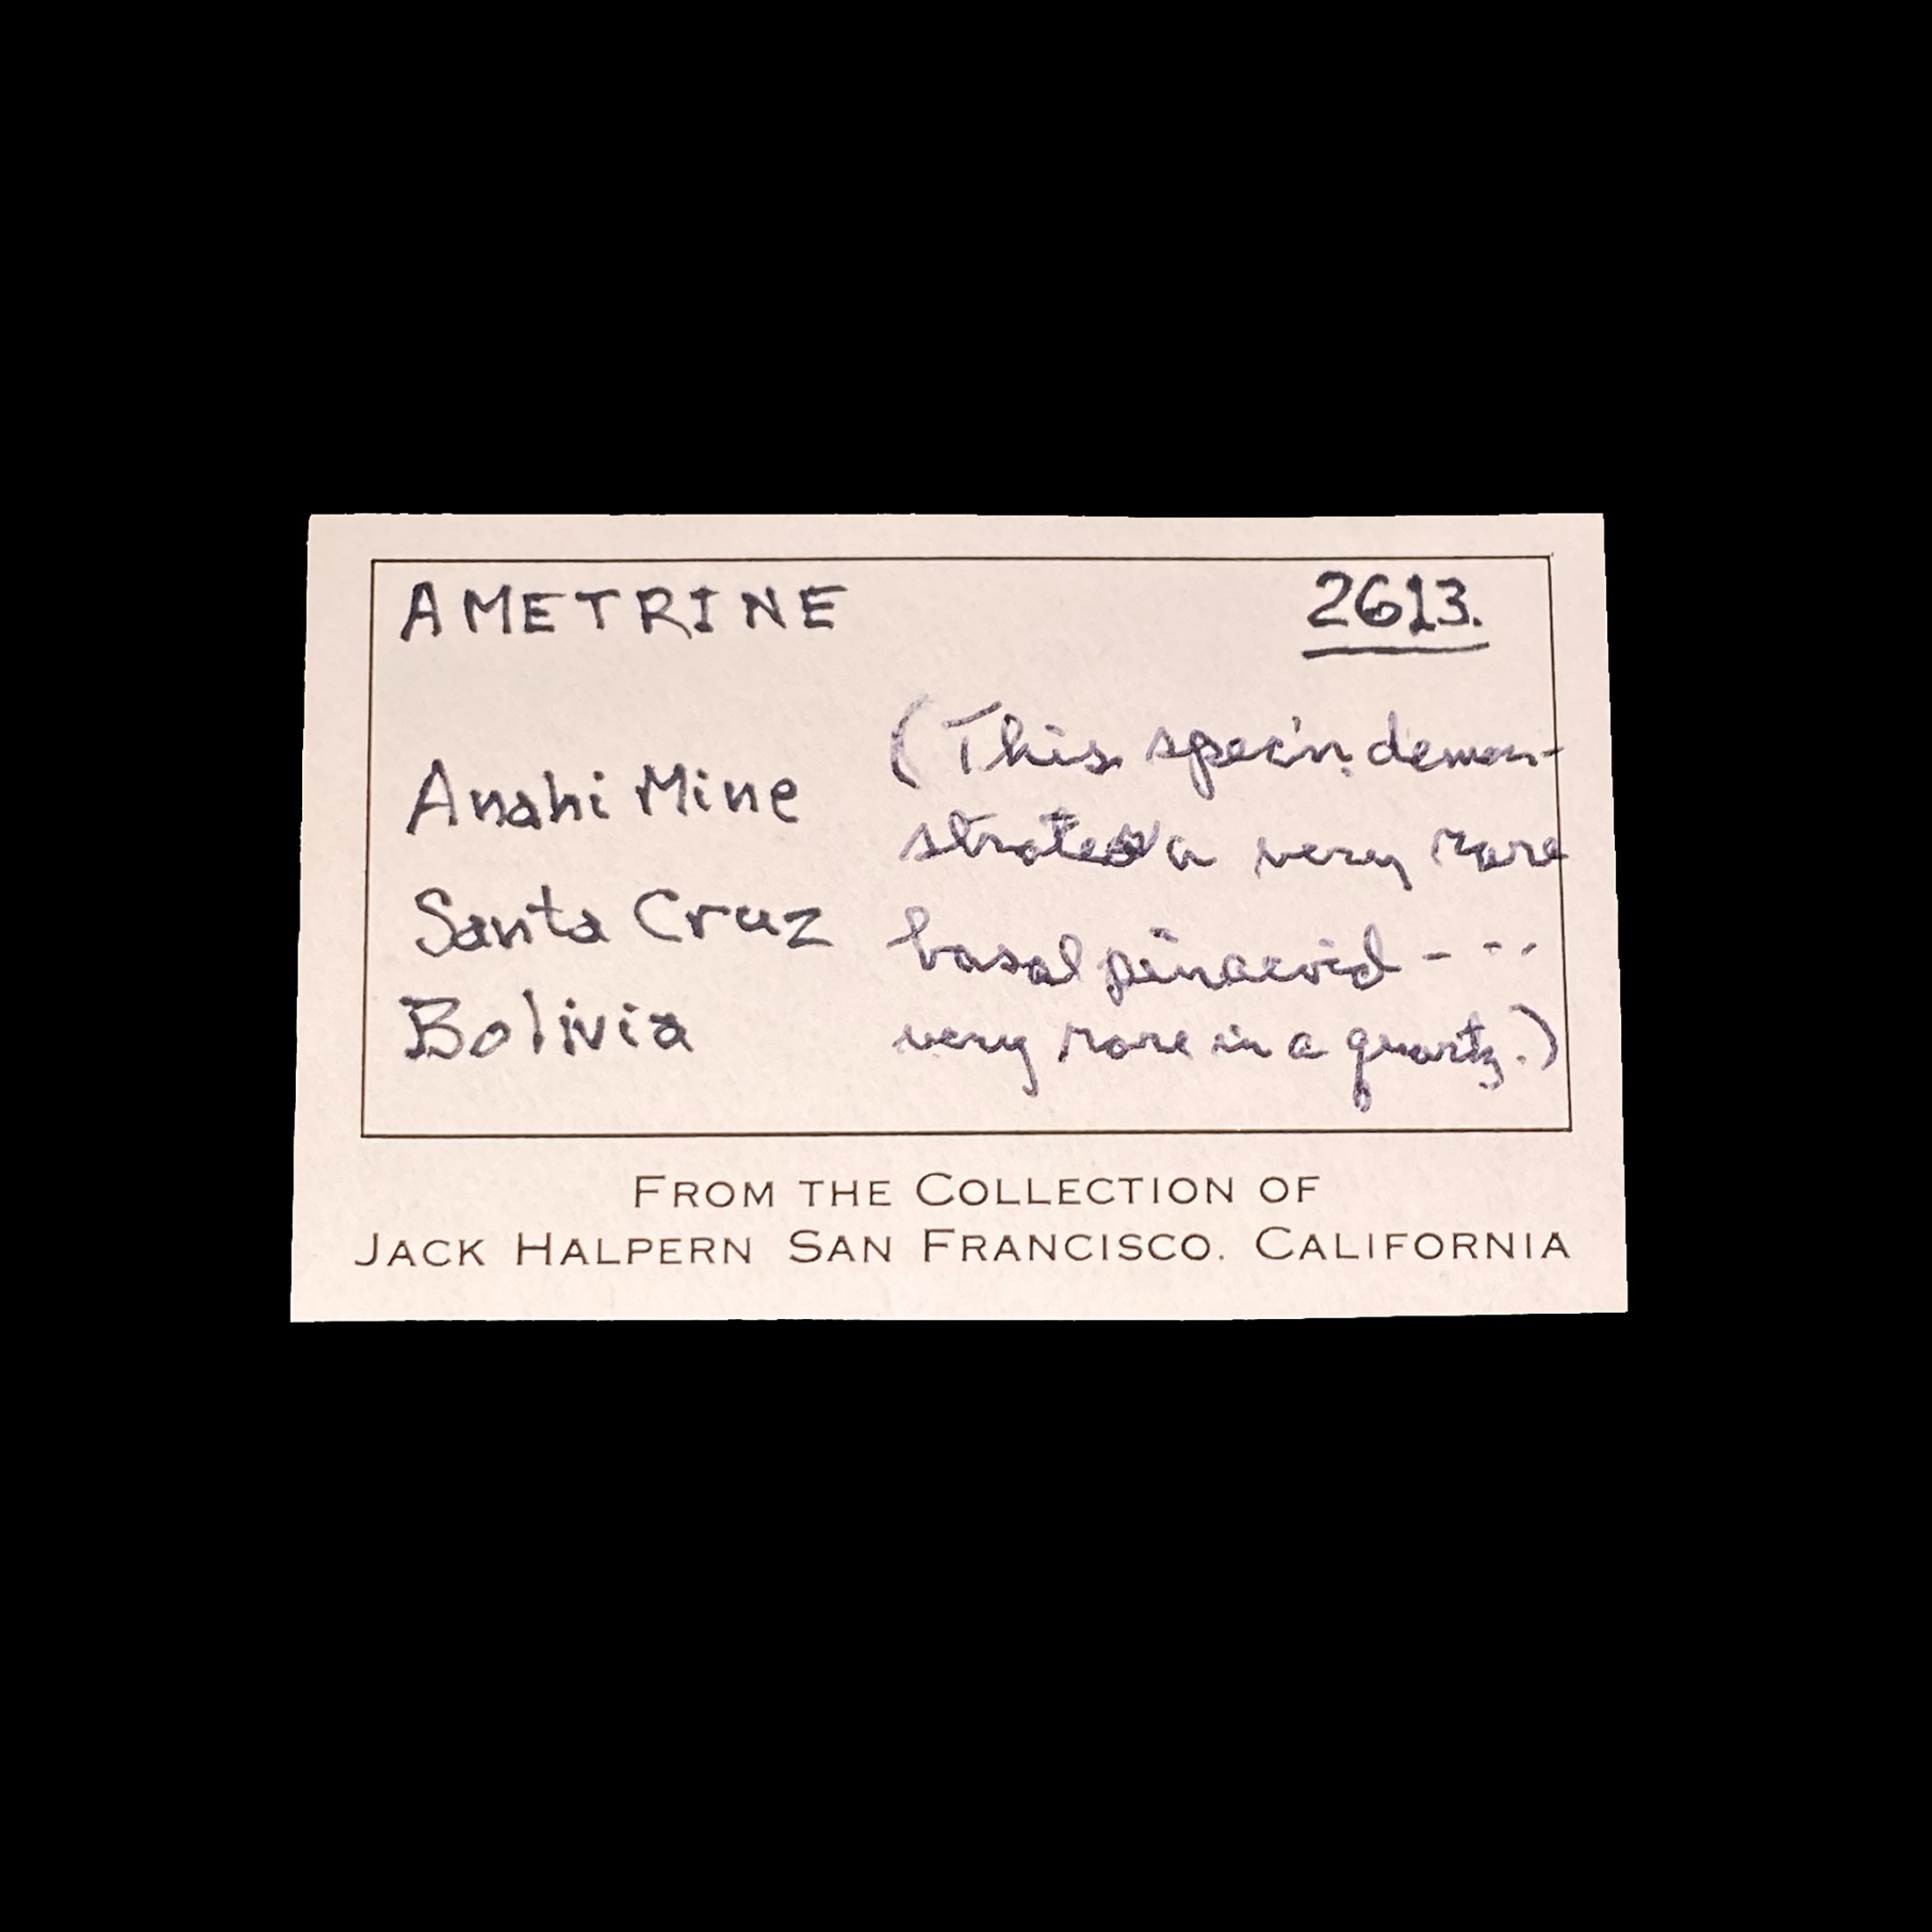 AMETRINE 2613.
Anahi Mine
Santa Cruz
Bolivia
(This spec'n. demon-
strates a very rare
basal pinacoid - - -
very rare in a quartz.)
FROM THE COLLECTION OF
JACK HALPERN SAN FRANCISCO. CALIFORNIA